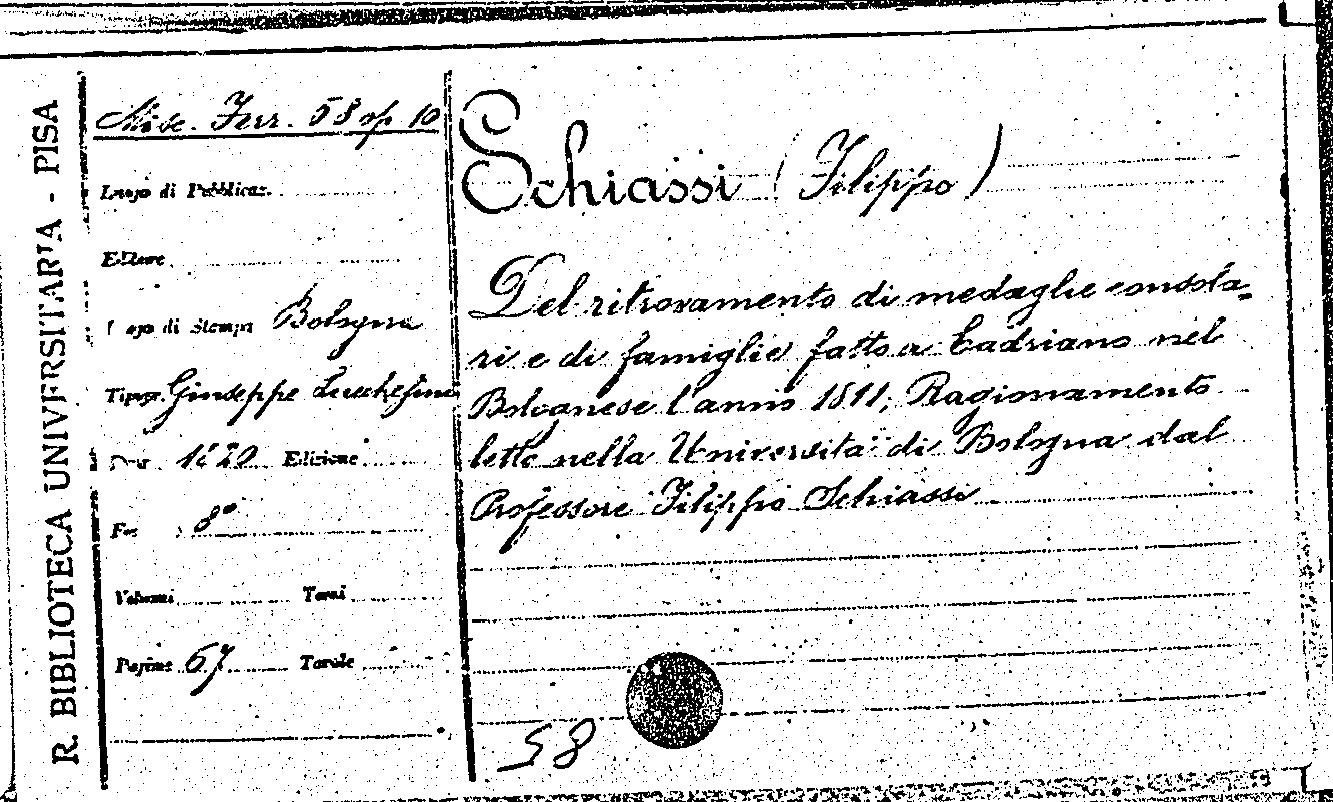 R. BIBLIOTECA UNIVERSITARIA - PISA
Misc. Ferr. 58 op 10
Luogo di Pubblicaz.
Editore
Luogo di Stampa Bologna
Tipogr. Giuseppe Lucchesini
Data 1820 Edizione
For. 8°
Volumi Tomi
Pagine 67 Tavole
Schiassi (Filippo)
Del ritrovamento di medaglie consola-
ri e di famiglie fatto a Cadriano nel
Bolognese l'anno 1811; Ragionamento
letto nella Università di Bologna dal
Professore Filippo Schiassi
58